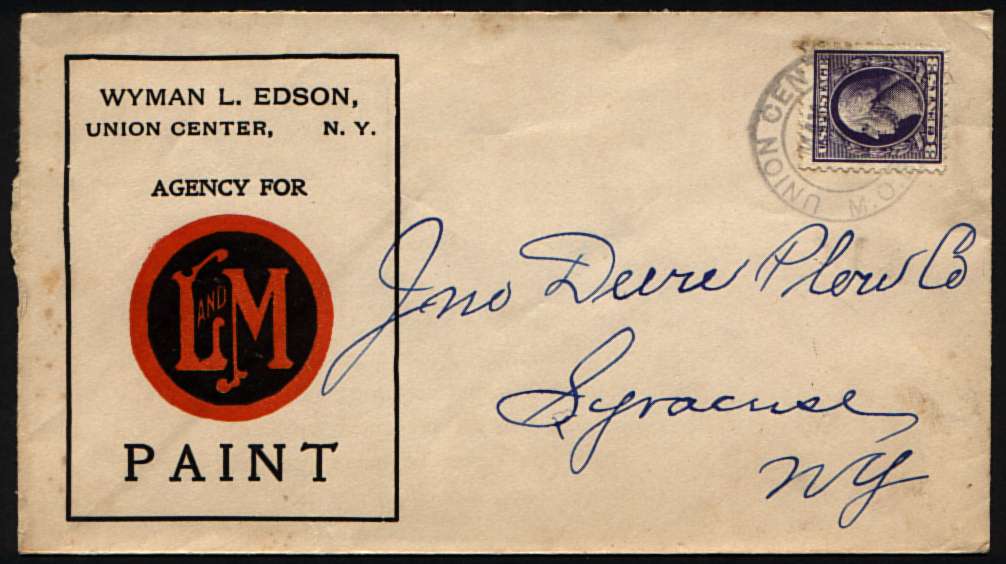 WYMAN L. EDSON,
UNION CENTER, N. Y.
AGENCY FOR
L AND M
PAINT
UNION CEN
M.O.
U.S. POSTAGE
3 CENTS 3
Jno Deere Plow Co
Syracuse
NY